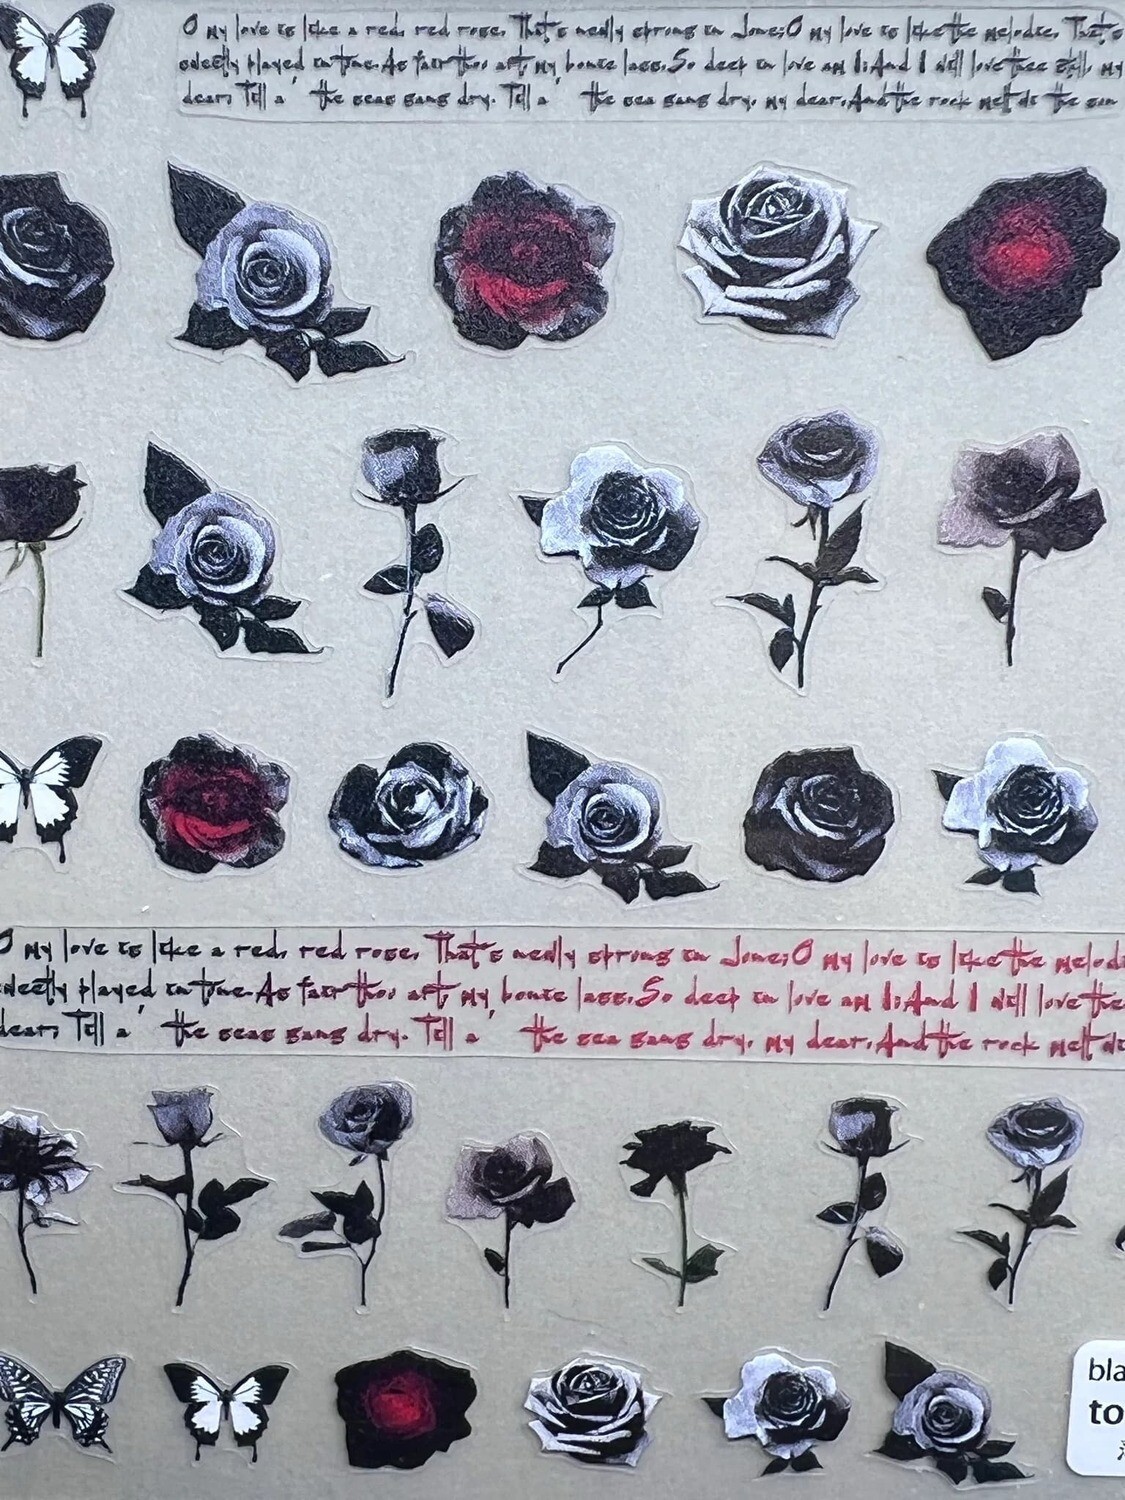 O my love is like a red, red rose, That's newly sprung in June;O my love is like the melodie, That's
sweetly played in tune.As fair thou art, my bonie lass,So deep in love am I;And I will love thee still, my
dear, Till a' the seas gang dry. Till a' the sea gang dry, my dear,And the rock melt di the sun
O my love is like a red, red rose, That's newly sprung in June;O my love is like the melodi
sweetly played in tune.As fair thou art, my bonie lass,So deep in love am I;And I will love thee
dear, Till a' the seas gang dry. Till a' the sea gang dry, my dear,And the rock melt di
bla
to